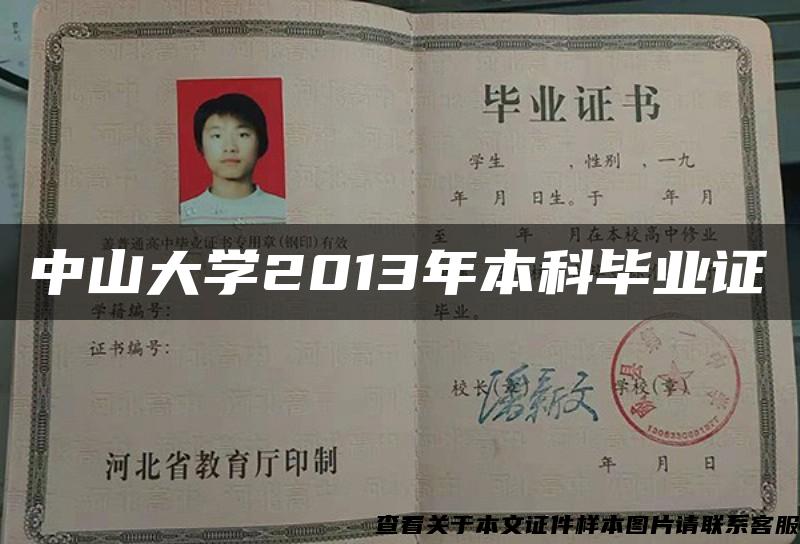 毕业证书
学生 ，性别 ，一九
年 月 日生。于 年 月
至 年 月在本校高中修业
盖普通高中毕业证书专用章(钢印)有效
中山大学2013年本科毕业证
学籍编号：
毕业。
证书编号：
校长(章)
潘新文
学校(章)
县第一中
河北省教育厅印制
年 月 日
查看关于本文证件样本图片请联系客服